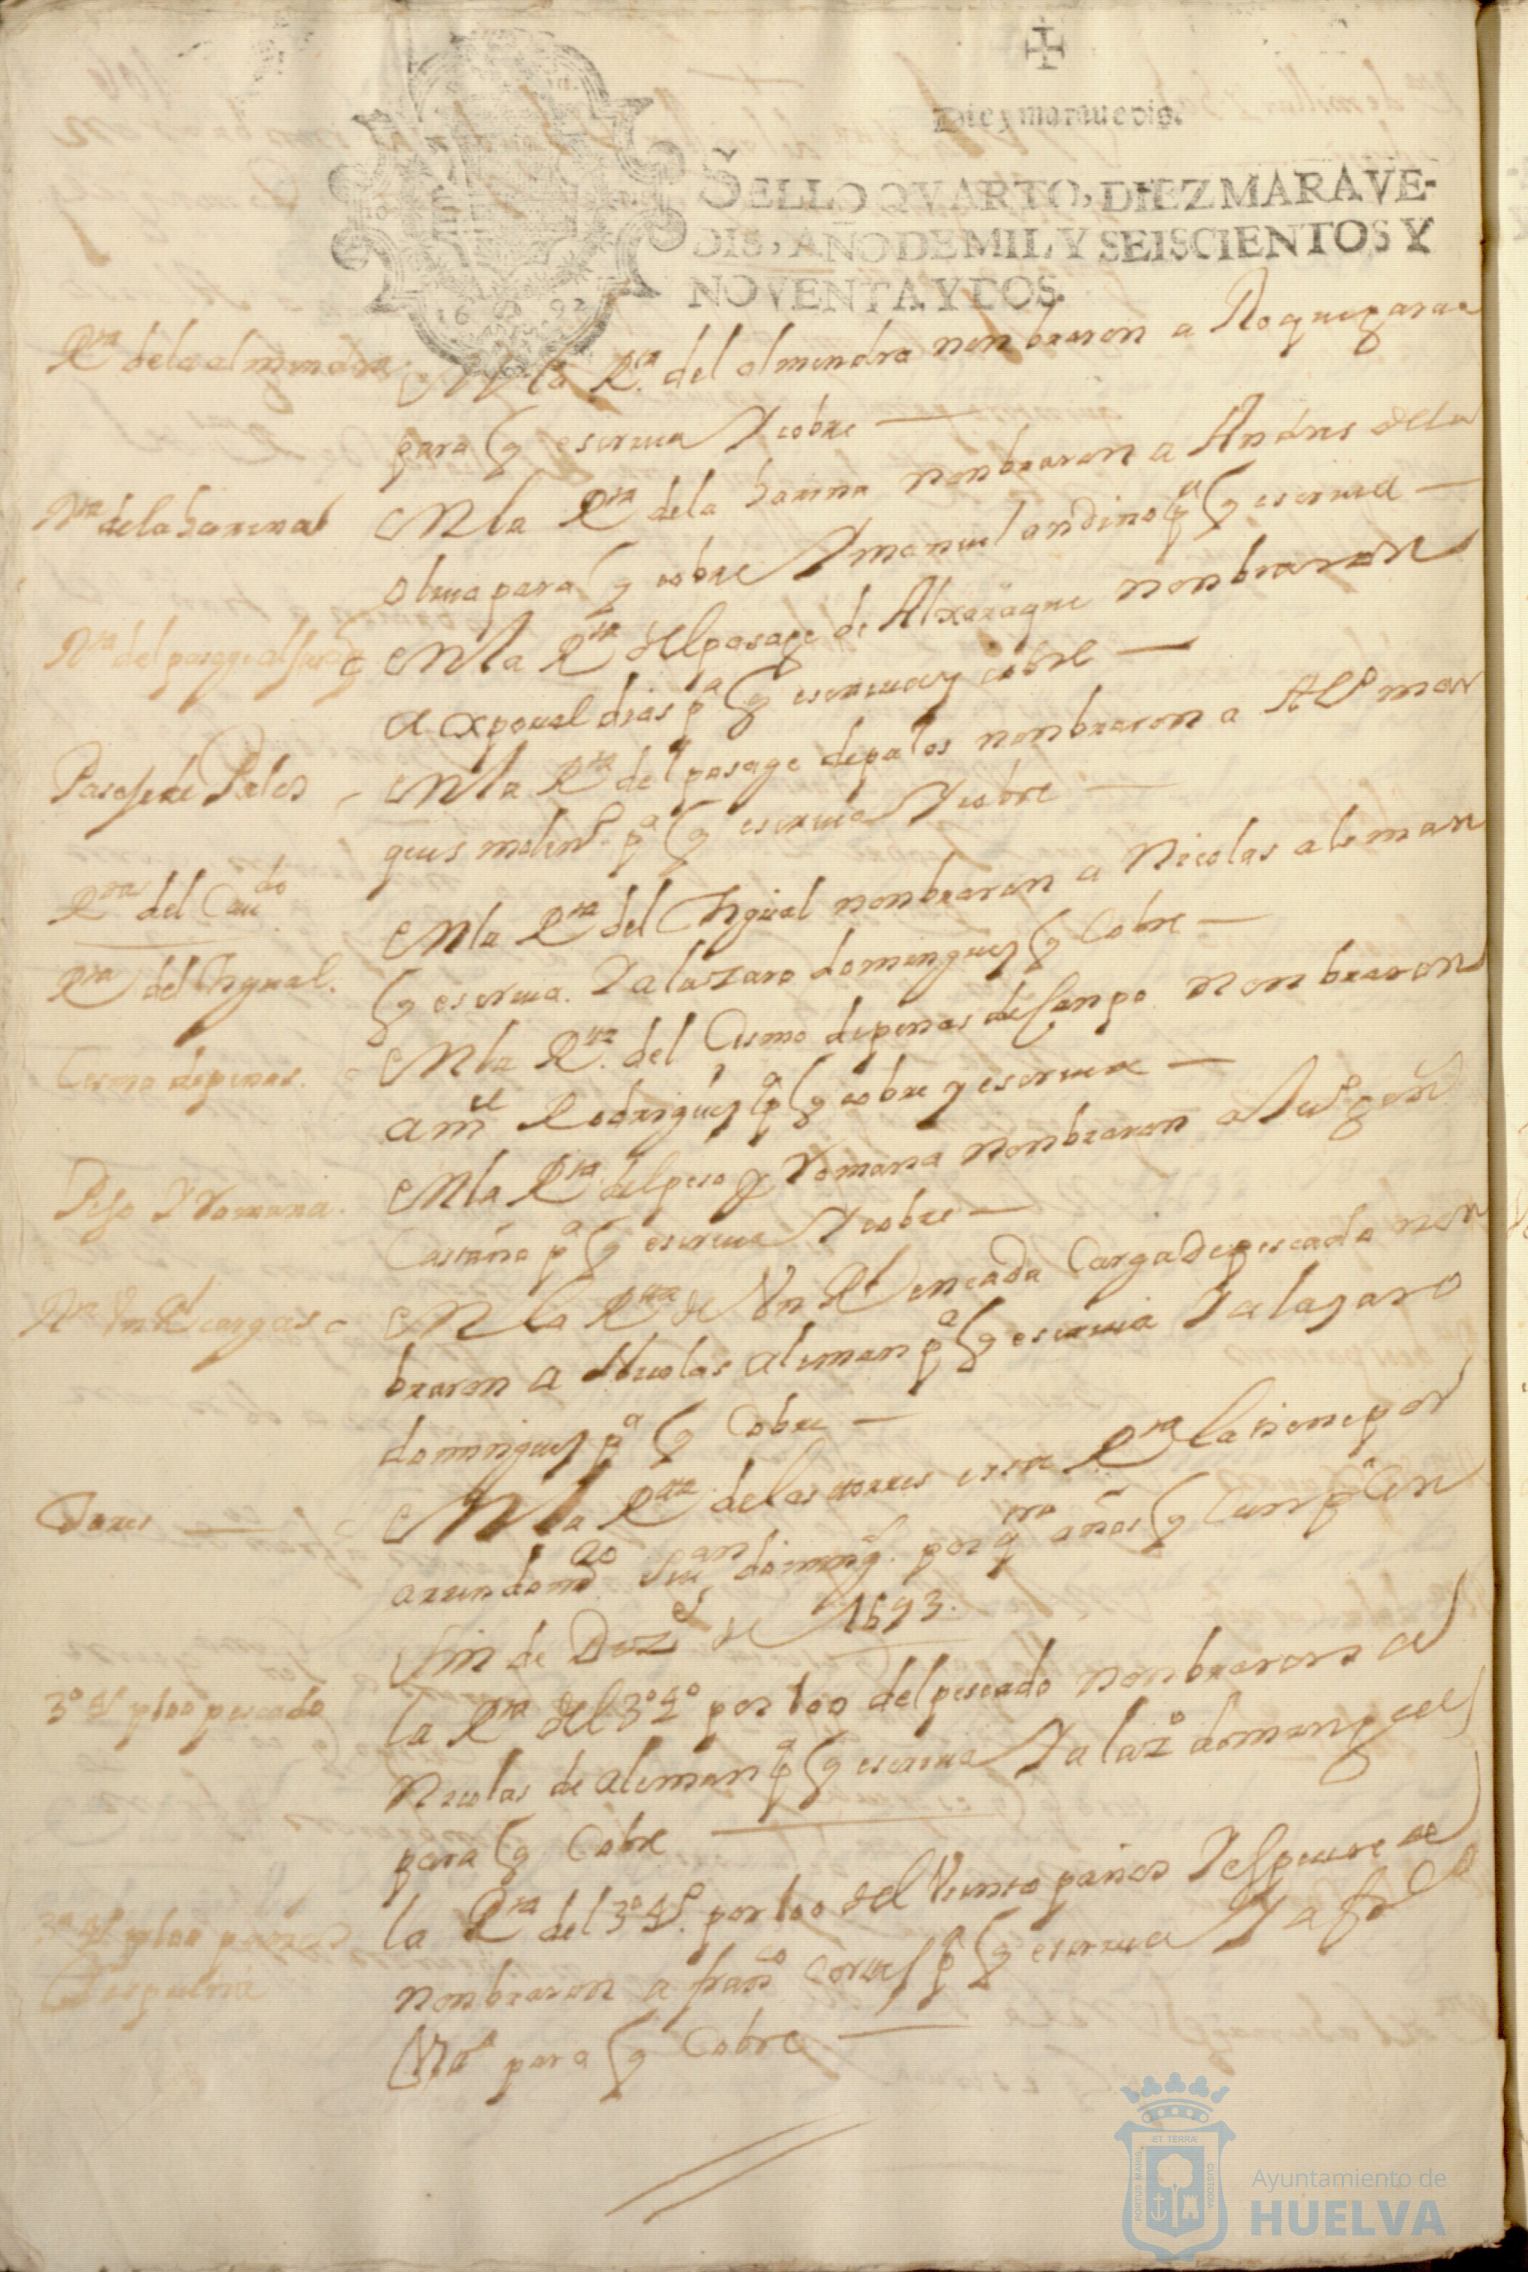 Diez marauedis.
SELLO QVARTO, DIEZ MARAVE-
DIS, AÑO DE MIL, Y SEISCIENTOS Y
NOVENTA Y DOS.
1692
Rta dela almendra
en la Rta. del almendra nonbraron a Roque garcia
para q escriua Y cobre
Rta de la harina
en la Rta dela harina nonbraron a Andres de la
oliua para q cobre Y manuel andino pa q escriua
Rta del pasage
en la Rta del pasage de Alxaraque nonbraron
a xpoual dias pa q escriua y cobre
Pasaje de Palos
en la Rta del pasage de palos nonbraron a Alo mar
ques molino. pa q escriua Y cobre
Rta del
Rta del
en la Rta del nonbraron a Nicolas aleman
q escriua. Y a lazaro domingues q Cobre
Cismo de penas.
en la Rta. del Cismo de penas de Canpo nonbraron
a ml Rodrigues pa q cobre y escriua
Peso Y Romana.
en la Rta del peso y Romana nonbraron a
Castaño pa q escriua Y cobre
Rta Vn Rl cargas
en la Rta de Vn Rl en cada Carga de pescado non
braron a Nicolas aleman pa q escriua Y a lazaro
domingues pa q Cobre
Torres
en la Rta de las torres esta Rta la tiene por
arrendamto Juan doming. por qtro años q Cunplen
fin de Dize de 1693.
3o 4o p 100 pescado
la Rta del 3o 4o por 100 del pescado nonbraron a
Nicolas de aleman pa q escriua Y a lazo domingues
para q Cobre
3o 4o p 100 paños
la Rta del 3o 4o. por 100 del Viento paños Y
nonbraron a franco Cortes pa q escriua Y a
para q Cobre
PORTUS MARIS
ET TERRÆ
CUSTODIA
Ayuntamiento de
HUELVA